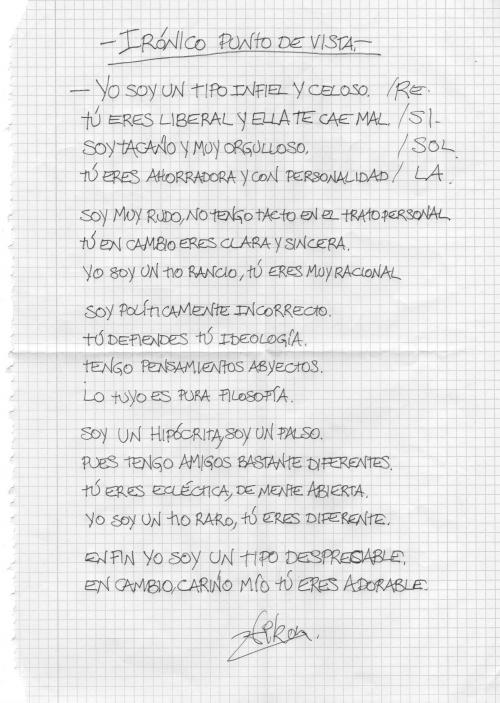 - IRÓNICO PUNTO DE VISTA.-
- YO SOY UN TIPO INFIEL Y CELOSO. /RE-
TÚ ERES LIBERAL Y ELLA TE CAE MAL. /SI-
SOY TACAÑO Y MUY ORGULLOSO. /SOL
TÚ ERES AHORRADORA Y CON PERSONALIDAD / LA
SOY MUY RUDO, NO TENGO TACTO EN EL TRATO PERSONAL
TÚ EN CAMBIO ERES CLARA Y SINCERA.
YO SOY UN TIO RANCIO, TÚ ERES MUY RACIONAL
SOY POLÍTICAMENTE INCORRECTO.
TÚ DEFIENDES TÚ IDEOLOGÍA.
TENGO PENSAMIENTOS ABYECTOS.
LO TUYO ES PURA FILOSOFÍA.
SOY UN HIPÓCRITA, SOY UN FALSO.
PUES TENGO AMIGOS BASTANTE DIFERENTES.
TÚ ERES ECLÉCTICA, DE MENTE ABIERTA.
YO SOY UN TIO RARO, TÚ ERES DIFERENTE.
EN FIN YO SOY UN TIPO DESPRECIABLE,
EN CAMBIO, CARIÑO MÍO TÚ ERES ADORABLE.